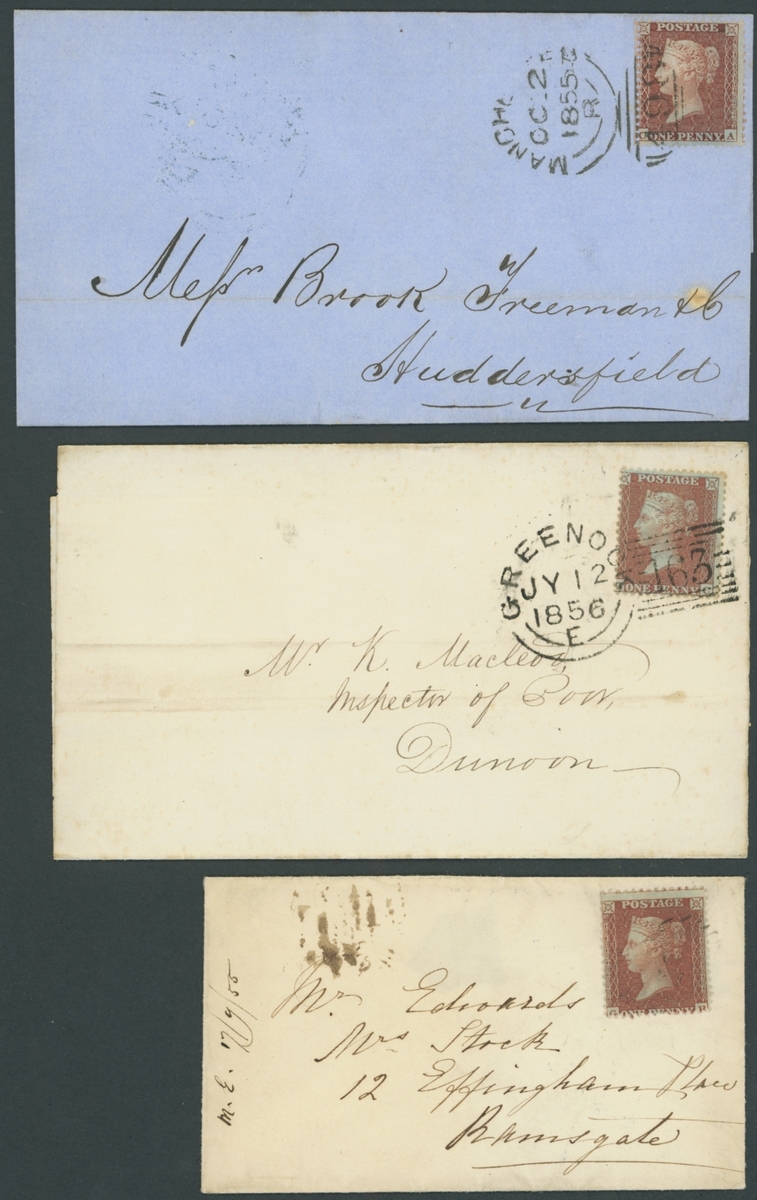 POSTAGE
ONE PENNY
A
MANCH
OC 2
1855
Messrs Brook Freeman & Co
Huddersfield
POSTAGE
ONE PENNY
GREENOC
JY 12
1856
E
163
Mr K. Macleod,
Inspector of Poor,
Dunoon
POSTAGE
G ONE PENNY
Mr Edwards
Mrs Stock
12 Effingham Place
Ramsgate
M. E. 17/9/55